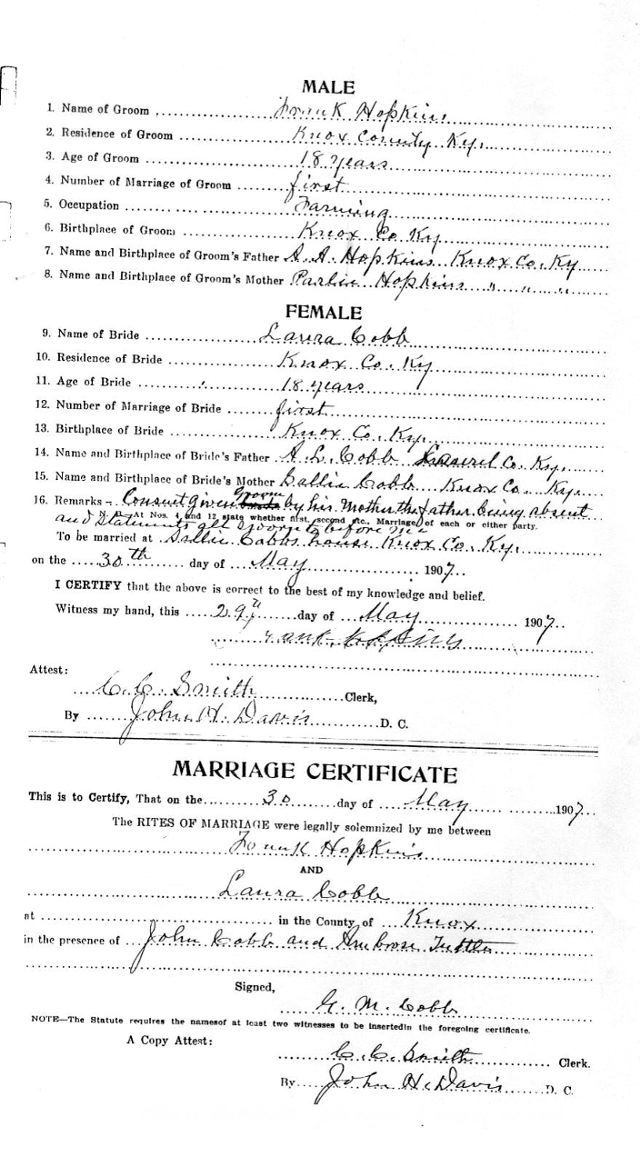 MALE
1. Name of Groom Frank Hopkins
2. Residence of Groom Knox County Ky.
3. Age of Groom 18 years
4. Number of Marriage of Groom first
5. Occupation Farming
6. Birthplace of Groom Knox Co. Ky
7. Name and Birthplace of Groom's Father A. A. Hopkins Knox Co. Ky
8. Name and Birthplace of Groom's Mother Parlie Hopkins " " "
FEMALE
9. Name of Bride Laura Cobb
10. Residence of Bride Knox Co. Ky
11. Age of Bride 18 years
12. Number of Marriage of Bride first
13. Birthplace of Bride Knox Co. Ky.
14. Name and Birthplace of Bride's Father A. L. Cobb Laurel Co. Ky.
15. Name and Birthplace of Bride's Mother Sallie Cobb Knox Co. Ky.
16. Remarks - Consent given groom by his Mother the father being absent
N. B.—At Nos. 4 and 12 state whether first, second etc., Marriage of each or either party.
and statements all before me
To be married at Sallie Cobbs house Knox Co. Ky.
on the 30th day of May 1907
I CERTIFY that the above is correct to the best of my knowledge and belief.
Witness my hand, this 29 day of May 1907
Attest:
C. C. Smith Clerk,
By John H. Davis D. C.
MARRIAGE CERTIFICATE
This is to Certify, That on the 30 day of May 1907
The RITES OF MARRIAGE were legally solemnized by me between
Frank Hopkins
AND
Laura Cobb
at in the County of Knox
in the presence of John Cobb and Ambrose Tuttle
Signed,
G. M. Cobb
NOTE—The Statute requires the namesof at least two witnesses to be insertedin the foregoing certificate.
A Copy Attest:
C. C. Smith Clerk.
By John H. Davis D. C.